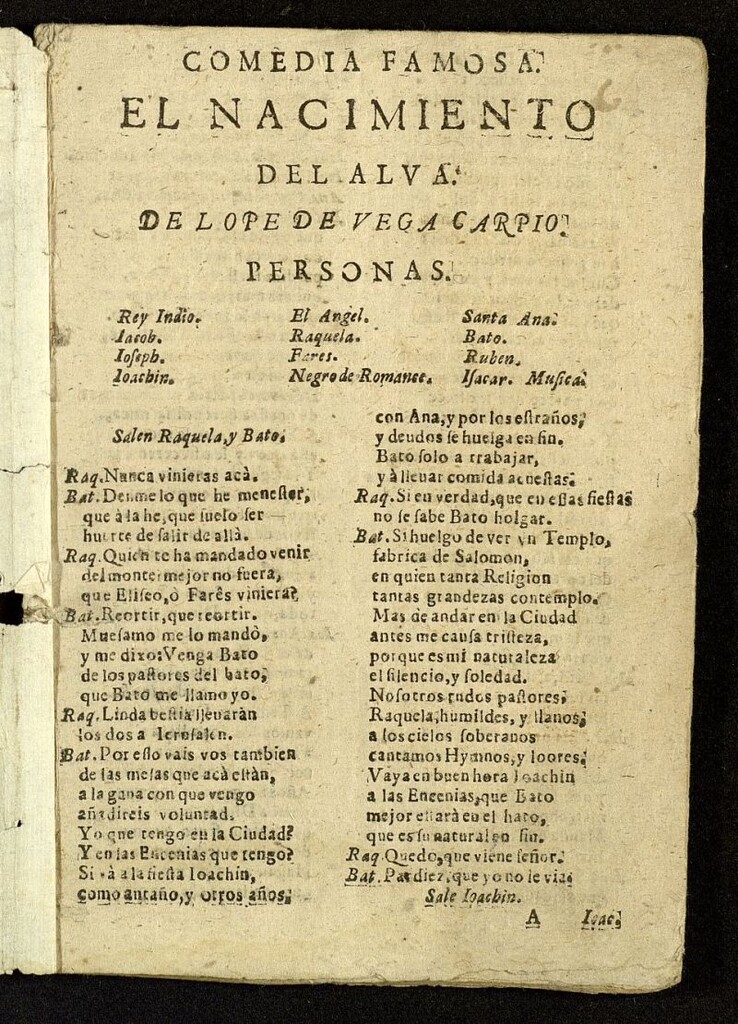 COMEDIA FAMOSA.
EL NACIMIENTO
DEL ALVA.
DE LOPE DE VEGA CARPIO.
PERSONAS.
Rey Indio.
Iacob.
Ioseph.
Ioachin.
El Angel.
Raquela.
Fares.
Negro de Romance.
Santa Ana.
Bato.
Ruben.
Isacar. Musica.
Salen Raquela, y Bato.
Raq. Nunca vinieras acà.
Bat. Denme lo que he menester,
que à la he, que suelo ser
huerte de salir de allà.
Raq. Quien te ha mandado venir
del monte: mejor no fuera,
que Eliseo, ò Farês viniera?
Bat. Reortir, que reortir.
Muesamo me lo mandò,
y me dixo: Venga Bato
de los pastores del hato,
que Bato me llamo yo.
Raq. Linda bestia llevaràn
los dos a Ierusalen.
Bat. Por esso vais vos tambien
de las mesas que acà estàn,
a la gana con que vengo
añadireis voluntad.
Yo que tengo en la Ciudad?
Y en las Encenias que tengo?
Si và a la fiesta Ioachin,
como antaño, y otros años,
con Ana, y por los estraños,
y deudos se huelga en fin.
Bato solo a trabajar,
y à llevar comida acuestas.
Raq. Si en verdad, que en essas fiestas
no se sabe Bato holgar.
Bat. Si huelgo de ver vn Templo,
fabrica de Salomon,
en quien tanta Religion
tantas grandezas contemplo.
Mas de andar en la Ciudad
antes me causa tristeza,
porque es mi naturaleza
el silencio, y soledad.
Nosotros rudos pastores,
Raquela, humildes, y llanos,
a los cielos soberanos
cantamos Hymnos, y loores,
Vaya en buen hora Ioachin
a las Encenias, que Bato
mejor estarà en el hato,
que es su natural en fin.
Raq. Quedo, que viene señor.
Bat. Pardiez, que yo no le via.
Sale Ioachin.
A Ioac.